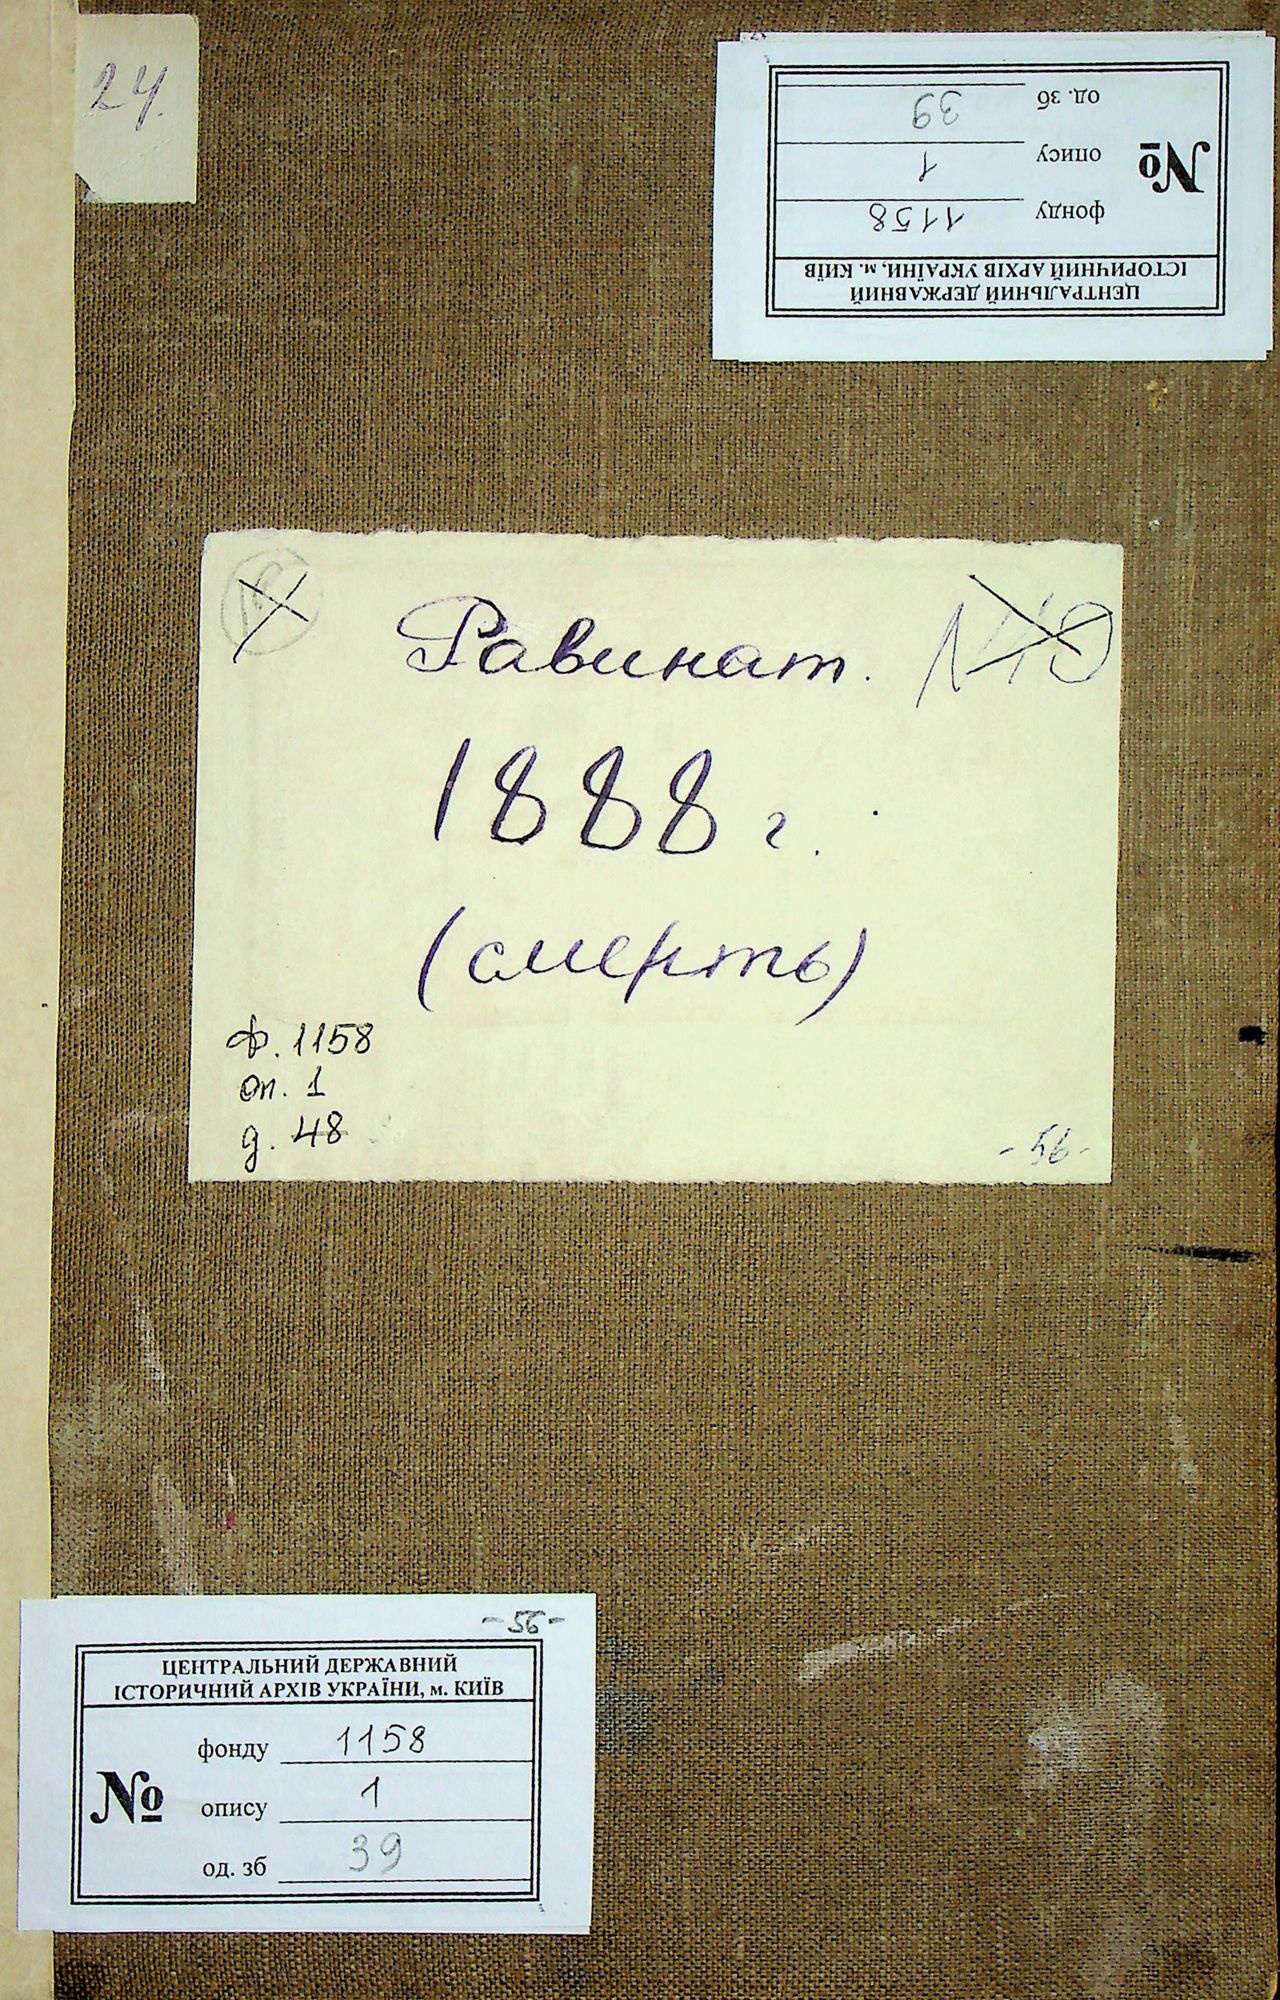 24.
од. зб 39
опису 1
№
фонду 1158
ЦЕНТРАЛЬНИЙ ДЕРЖАВНИЙ
ІСТОРИЧНИЙ АРХІВ УКРАЇНИ, м. КИЇВ
Равинат.
1888 г.
(смерть)
Ф. 1158
оп. 1
д. 48
-56-
-56-
ЦЕНТРАЛЬНИЙ ДЕРЖАВНИЙ
ІСТОРИЧНИЙ АРХІВ УКРАЇНИ, м. КИЇВ
фонду 1158
№
опису 1
од. зб 39